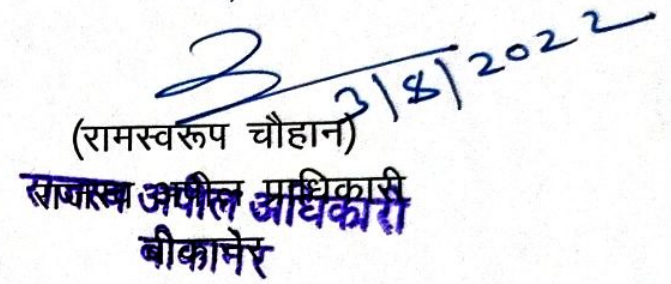 3/8/2022
(रामस्वरूप चौहान)
राजस्व अपील प्राधिकारी
राजस्व अपील अधिकारी
बीकानेर